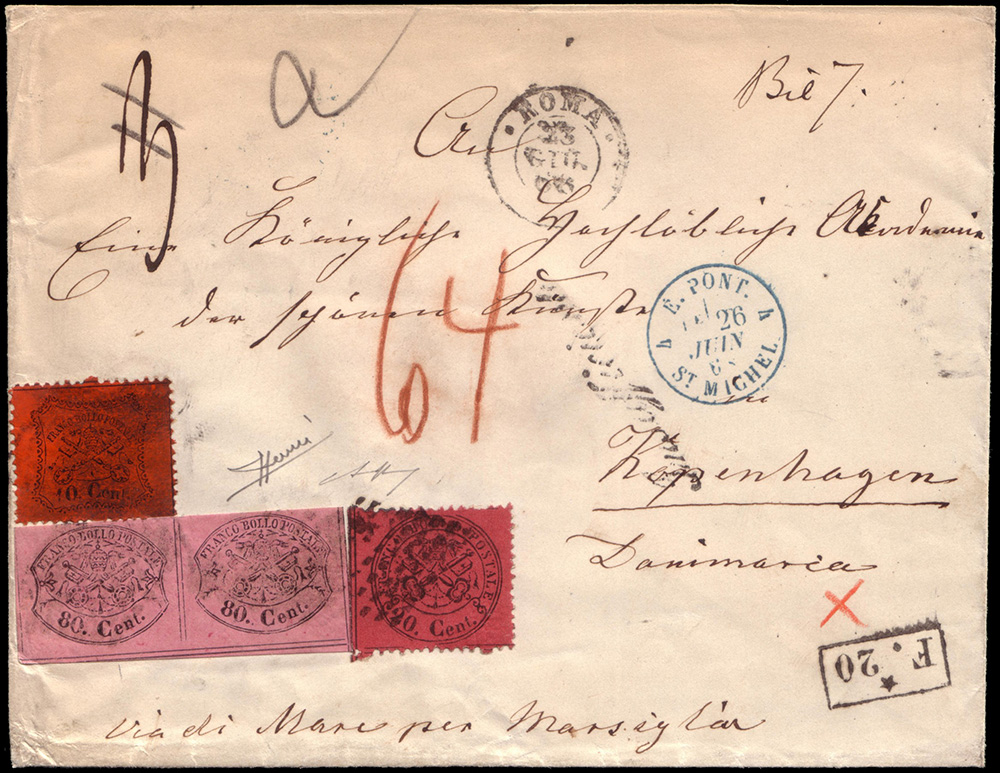 Bil 7.
An
ROMA
23
GIU
68
Eine Königliche Hochlöbliche Akademie
der schönen Künste
64
E. PONT.
26
JUIN
68
ST MICHEL
Kopenhagen
Danimaria
FRANCO BOLLO POSTALE
10 Cent.
FRANCO BOLLO POSTALE
80. Cent.
FRANCO BOLLO POSTALE
80. Cent.
POSTALE
40. Cent.
F. 20
via di Mare per Marsiglia